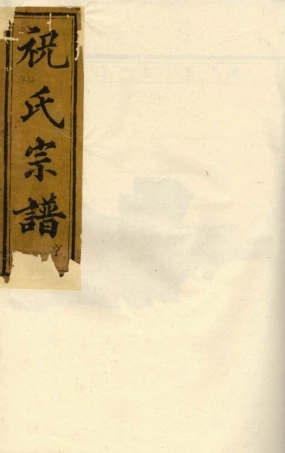 祝氏宗譜